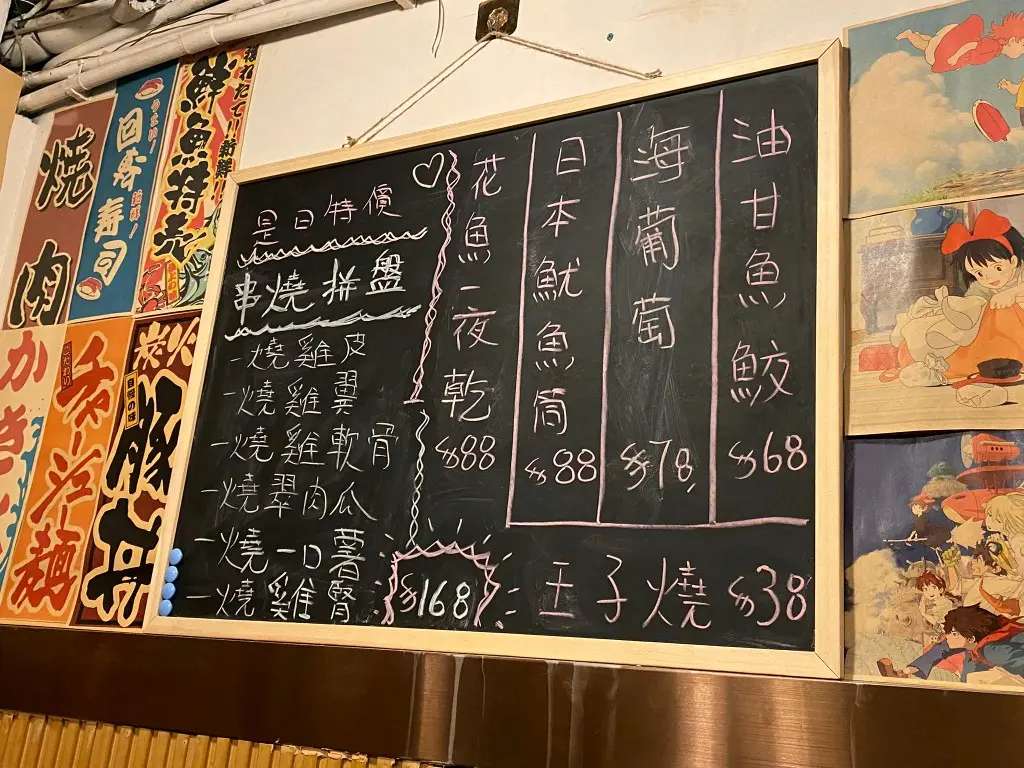 焼肉
回転寿司
鮮魚特売
かき
チャーシュー麺
炭火
豚丼
自慢の味
是日特價
串燒拼盤
一燒雞皮
一燒雞翼
一燒雞軟骨
一燒翠肉瓜
一燒一口薯
一燒雞腎
$168
花魚一夜乾
$88
日本魷魚筒
$88
海葡萄
$78
油甘魚鮫
$68
玉子燒 $38